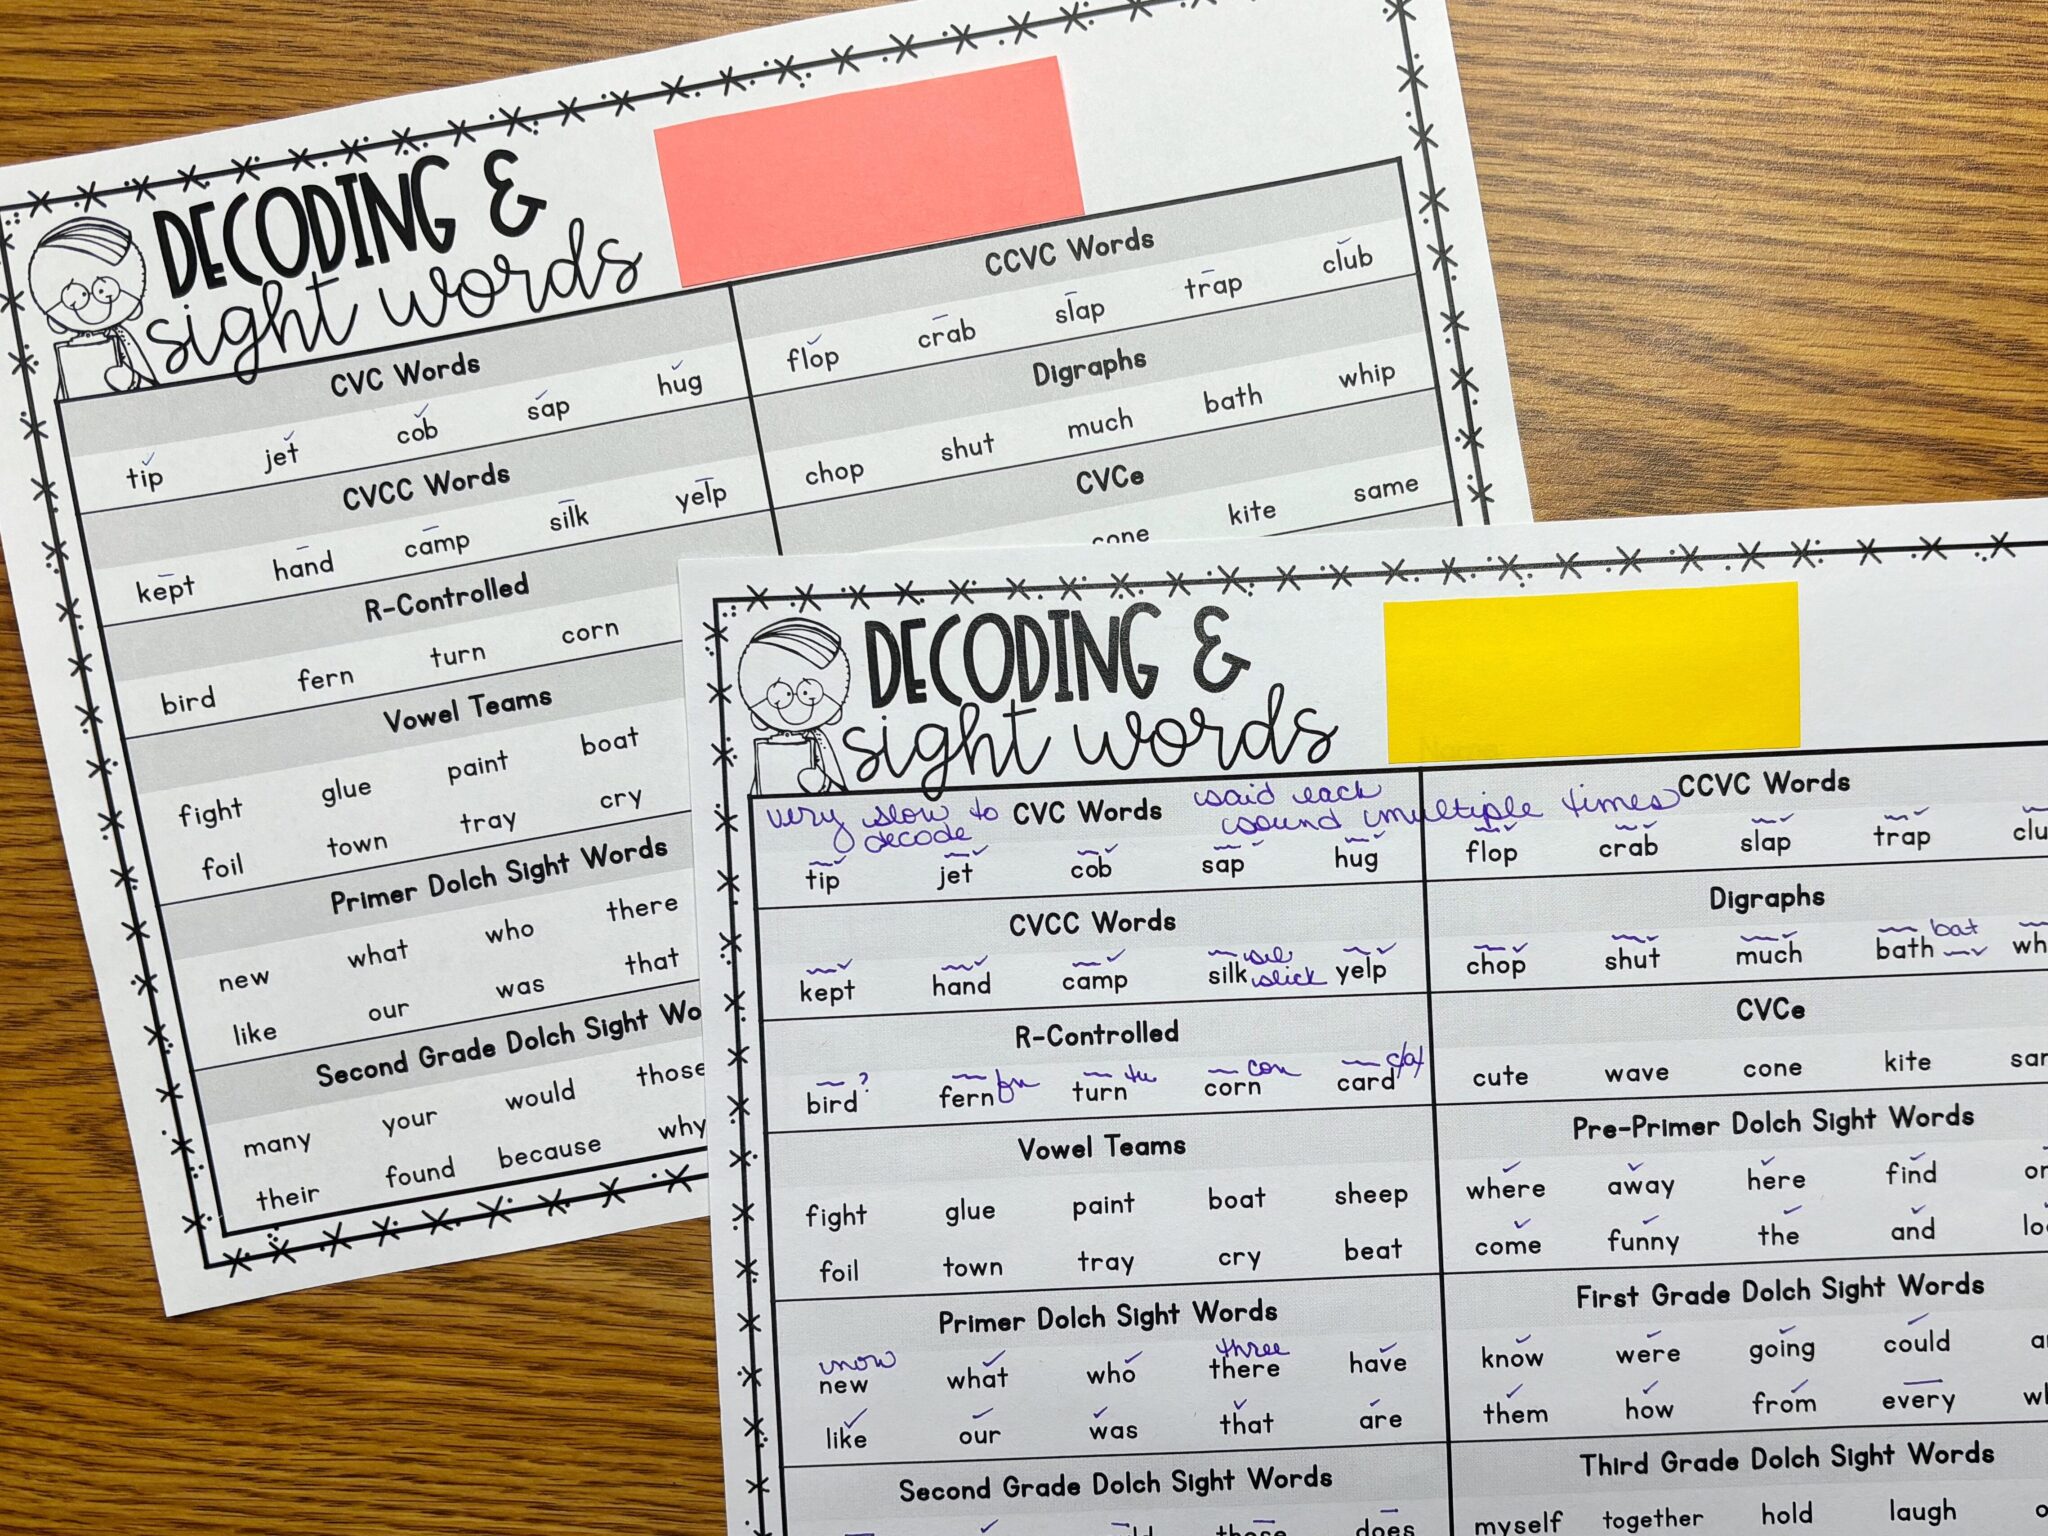 DECODING &
sight words
CVC Words
tip jet cob sap hug
CVCC Words
kept hand camp silk yelp
R-Controlled
bird fern turn corn
Vowel Teams
fight glue paint boat
foil town tray cry
Primer Dolch Sight Words
new what who there
like our was that
Second Grade Dolch Sight Wo
many your would those
their found because why
CCVC Words
flop crab slap trap club
Digraphs
chop shut much bath whip
CVCe
cone kite same
DECODING &
sight words
very slow to decode
said each sound multiple times
CVC Words
tip jet cob sap hug
CVCC Words
kept hand camp silk slick yelp
R-Controlled
bird ? fern turn corn con card
Vowel Teams
fight glue paint boat sheep
foil town tray cry beat
Primer Dolch Sight Words
snow three
new what who there have
like our was that are
Second Grade Dolch Sight Words
those does
CCVC Words
flop crab slap trap clu
Digraphs
chop shut much bath bat wh
CVCe
cute wave cone kite sam
Pre-Primer Dolch Sight Words
where away here find
come funny the and
First Grade Dolch Sight Words
know were going could
them how from every
Third Grade Dolch Sight Words
myself together hold laugh